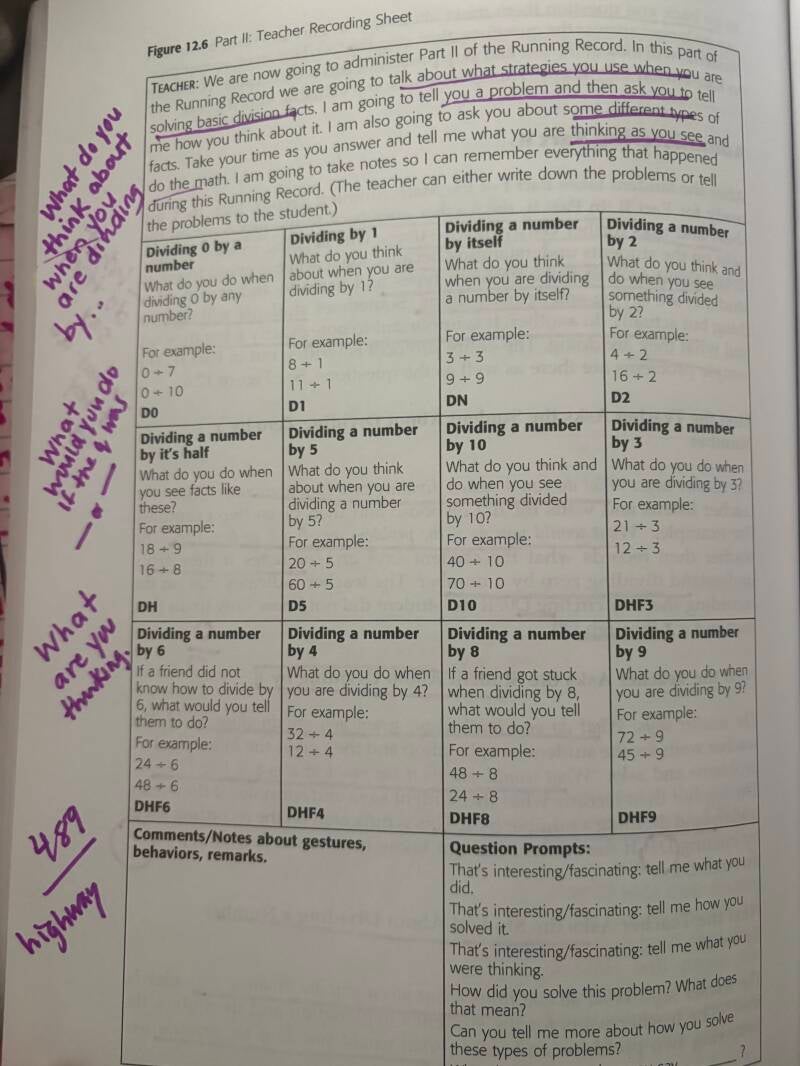 Figure 12.6 Part II: Teacher Recording Sheet
TEACHER: We are now going to administer Part II of the Running Record. In this part of
the Running Record we are going to talk about what strategies you use when you are
solving basic division facts. I am going to tell you a problem and then ask you to tell
me how you think about it. I am also going to ask you about some different types of
facts. Take your time as you answer and tell me what you are thinking as you see and
do the math. I am going to take notes so I can remember everything that happened
during this Running Record. (The teacher can either write down the problems or tell
the problems to the student.)
What do you
think about
when you
are dividing
by...
Dividing 0 by a
number
What do you do when
dividing 0 by any
number?
For example:
0 ÷ 7
0 ÷ 10
D0
Dividing by 1
What do you think
about when you are
dividing by 1?
For example:
8 ÷ 1
11 ÷ 1
D1
Dividing a number
by itself
What do you think
when you are dividing
a number by itself?
For example:
3 ÷ 3
9 ÷ 9
DN
Dividing a number
by 2
What do you think and
do when you see
something divided
by 2?
For example:
4 ÷ 2
16 ÷ 2
D2
What
would you do
if the q was
— or —
Dividing a number
by it's half
What do you do when
you see facts like
these?
For example:
18 ÷ 9
16 ÷ 8
DH
Dividing a number
by 5
What do you think
about when you are
dividing a number
by 5?
For example:
20 ÷ 5
60 ÷ 5
D5
Dividing a number
by 10
What do you think and
do when you see
something divided
by 10?
For example:
40 ÷ 10
70 ÷ 10
D10
Dividing a number
by 3
What do you do when
you are dividing by 3?
For example:
21 ÷ 3
12 ÷ 3
DHF3
What
are you
thinking.
Dividing a number
by 6
If a friend did not
know how to divide by
6, what would you tell
them to do?
For example:
24 ÷ 6
48 ÷ 6
DHF6
Dividing a number
by 4
What do you do when
you are dividing by 4?
For example:
32 ÷ 4
12 ÷ 4
DHF4
Dividing a number
by 8
If a friend got stuck
when dividing by 8,
what would you tell
them to do?
For example:
48 ÷ 8
24 ÷ 8
DHF8
Dividing a number
by 9
What do you do when
you are dividing by 9?
For example:
72 ÷ 9
45 ÷ 9
DHF9
489
highway
Comments/Notes about gestures,
behaviors, remarks.
Question Prompts:
That's interesting/fascinating: tell me what you
did.
That's interesting/fascinating: tell me how you
solved it.
That's interesting/fascinating: tell me what you
were thinking.
How did you solve this problem? What does
that mean?
Can you tell me more about how you solve
these types of problems?
?